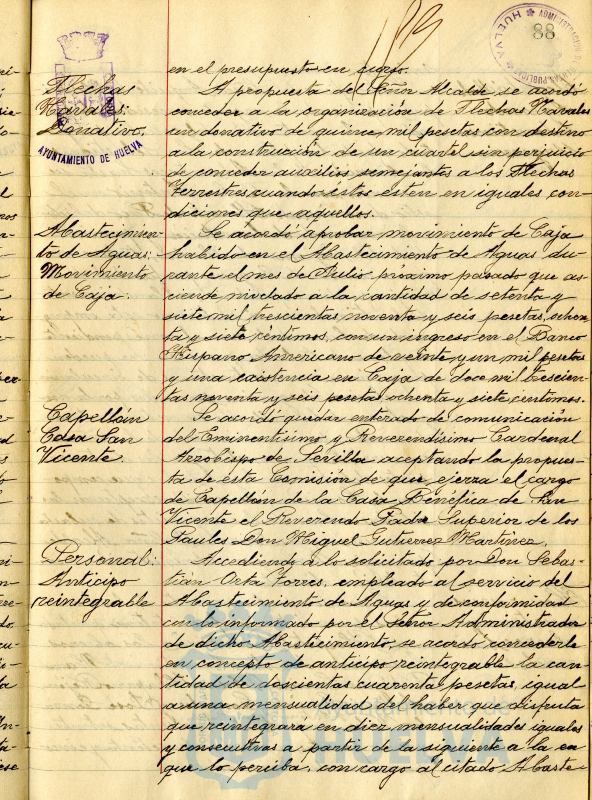 88
HUELVA
AYUNTAMIENTO DE HUELVA
en el presupuesto en curso.
Flechas
Navales:
Donativo.
A propuesta del Señor Alcalde se acordó
conceder a la organización de Flechas Navales
un donativo de quince mil pesetas con destino
a la construcción de un cuartel sin perjuicio
de conceder auxilios semejantes a los Flechas
Terrestres cuando éstos esten en iguales con-
diciones que aquellos.
Abastecimien-
to de Aguas:
Movimiento
de Caja:
Se acordó aprobar movimiento de Caja
habido en el Abastecimiento de Aguas du-
rante el mes de Julio próximo pasado que as-
ciende nivelado a la cantidad de setenta y
siete mil trescientas noventa y seis pesetas, ochen-
ta y siete céntimos, con un ingreso en el Banco
Hispano Americano de veinte y un mil pesetas
y una existencia en Caja de doce mil trescien-
tas noventa y seis pesetas ochenta y siete centimos.
Capellán
Casa San
Vicente
Se acordó quedar enterado de comunicación
del Eminentísimo y Reverendísimo Cardenal
Arzobispo de Sevilla aceptando la propues-
ta de esta Comisión de que ejerza el cargo
de Capellán de la Casa Benéfica de San
Vicente el Reverendo Padre Superior de los
Paules Don Miguel Gutierrez Martínez.
Personal:
Anticipo
reintegrable
Accediendo a lo solicitado por Don Sebas-
tián Orta Torres, empleado al servicio del
Abastecimiento de Aguas y de conformidad
con lo informado por el Señor Administrador
de dicho Abastecimiento, se acordó concederle
en concepto de anticipo reintegrable la can-
tidad de doscientas cuarenta pesetas, igual
a una mensualidad del haber que disfruta
que reintegrará en diez mensualidades iguales
y consecutivas a partir de la siguiente a la en
que lo perciba, con cargo al citado Abaste-